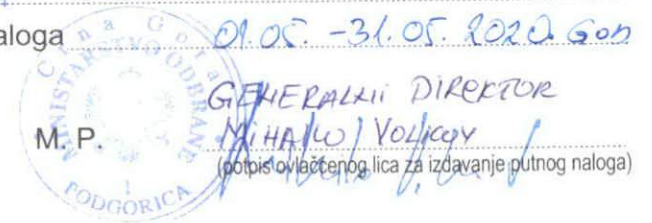 aloga 01.05. - 31.05. 2020. GOD
GENERALNI DIREKTOR
M. P. MIHAILO VOLKOV
(potpis ovlaščenog lica za izdavanje putnog naloga)
Crna Gora
MINISTARSTVO ODBRANE
1
PODGORICA